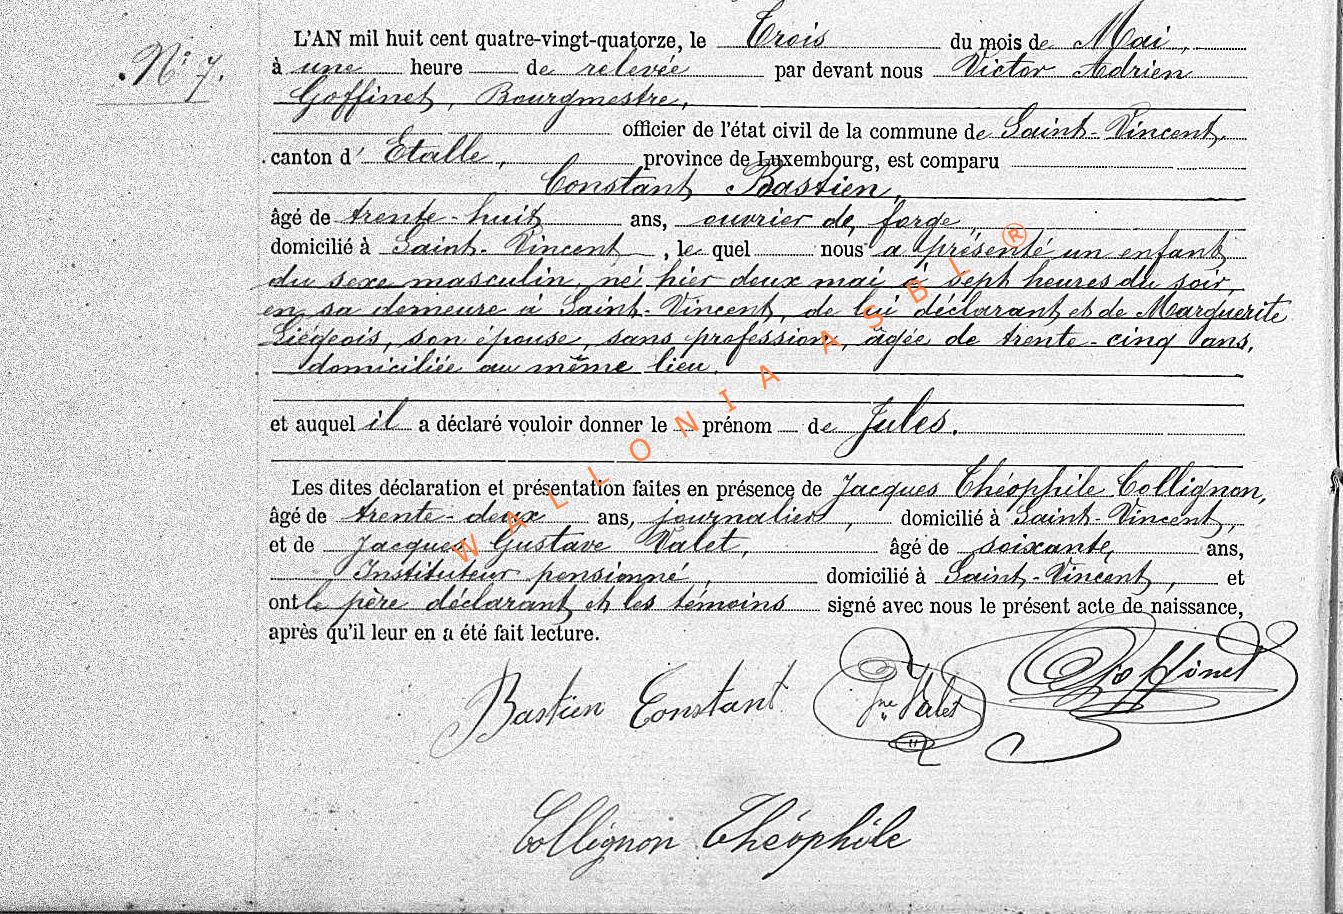 N° 7.
L'AN mil huit cent quatre-vingt-quatorze, le Trois du mois de Mai,
à une heure de relevée par devant nous Victor Adrien
Goffinet, Bourgmestre,
officier de l'état civil de la commune de Saint-Vincent,
canton d' Etalle, province de Luxembourg, est comparu
Constant Bastien,
âgé de trente-huit ans, ouvrier de forge,
domicilié à Saint-Vincent, le quel nous a présenté un enfant
du sexe masculin, né hier deux mai à sept heures du soir,
en sa demeure à Saint-Vincent, de lui déclarant et de Marguerite
Liégeois, son épouse, sans profession, âgée de trente-cinq ans,
domiciliée au même lieu.
et auquel il a déclaré vouloir donner le prénom de Jules.
Les dites déclaration et présentation faites en présence de Jacques Théophile Collignon,
âgé de trente-deux ans, journalier, domicilié à Saint-Vincent,
et de Jacques Gustave Valet, âgé de soixante ans,
Instituteur pensionné, domicilié à Saint-Vincent, et
ont le père déclarant et les témoins signé avec nous le présent acte de naissance,
après qu'il leur en a été fait lecture.
Bastien Constant Valet Goffinet
Collignon Théophile
WALLONIA ASBL ®